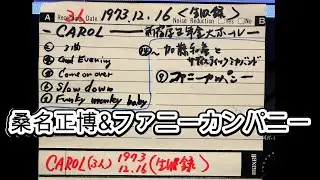 A
Recording Date 1973.12.16 <生収録>
Noise Reduction □Yes □No
B
- CAROL - 新宿厚生年金大ホール -
① 3曲
② Good Evening
③ Come on over
④ Slow down
⑤ Funky monkey baby
加藤和彦と
サディスティックミカバンド
ファニーカンパニー
桑名正博&ファニーカンパニー
CAROL(3人) 1973
12.16 (生収録)
maxell